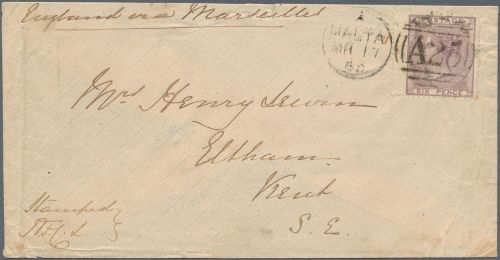 England via Marseilles
POSTAGE
MALTA
MR 17
60
A25
SIX PENCE
Mrs Henry Lewin
Eltham
Kent
S. E.
Stamped